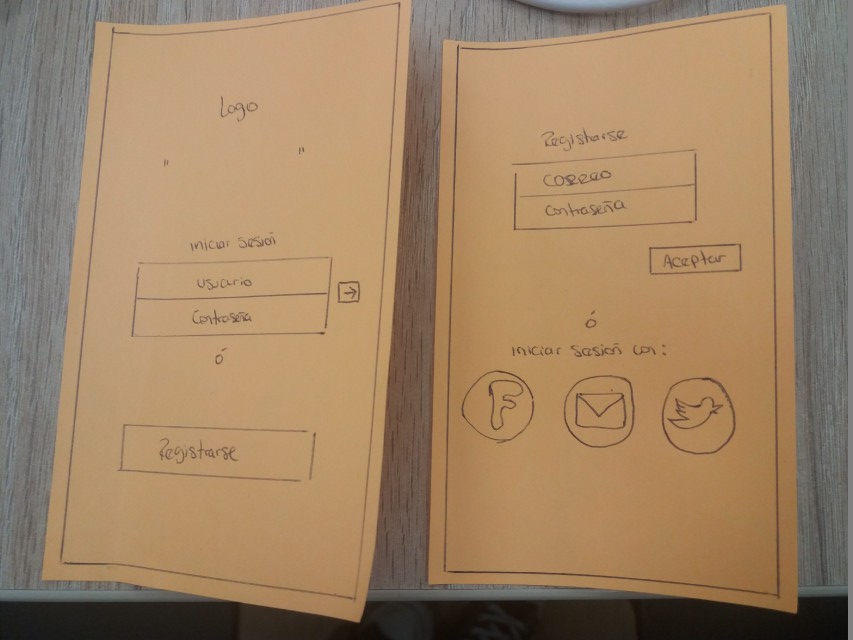 Logo
" "
Iniciar sesión
Usuario
Contraseña
ó
Registrarse
Registrarse
Correo
Contraseña
Aceptar
ó
Iniciar sesión con:
F